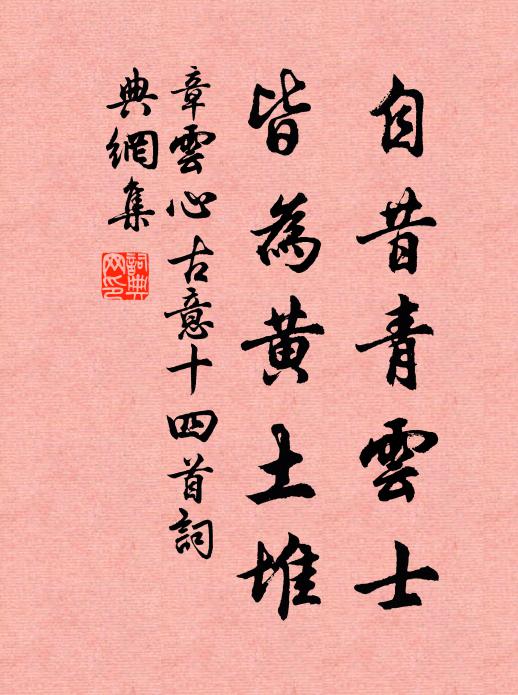 自昔青雲士
皆為黃土堆
章雲心古意十四首詞
典網集
詞典網印